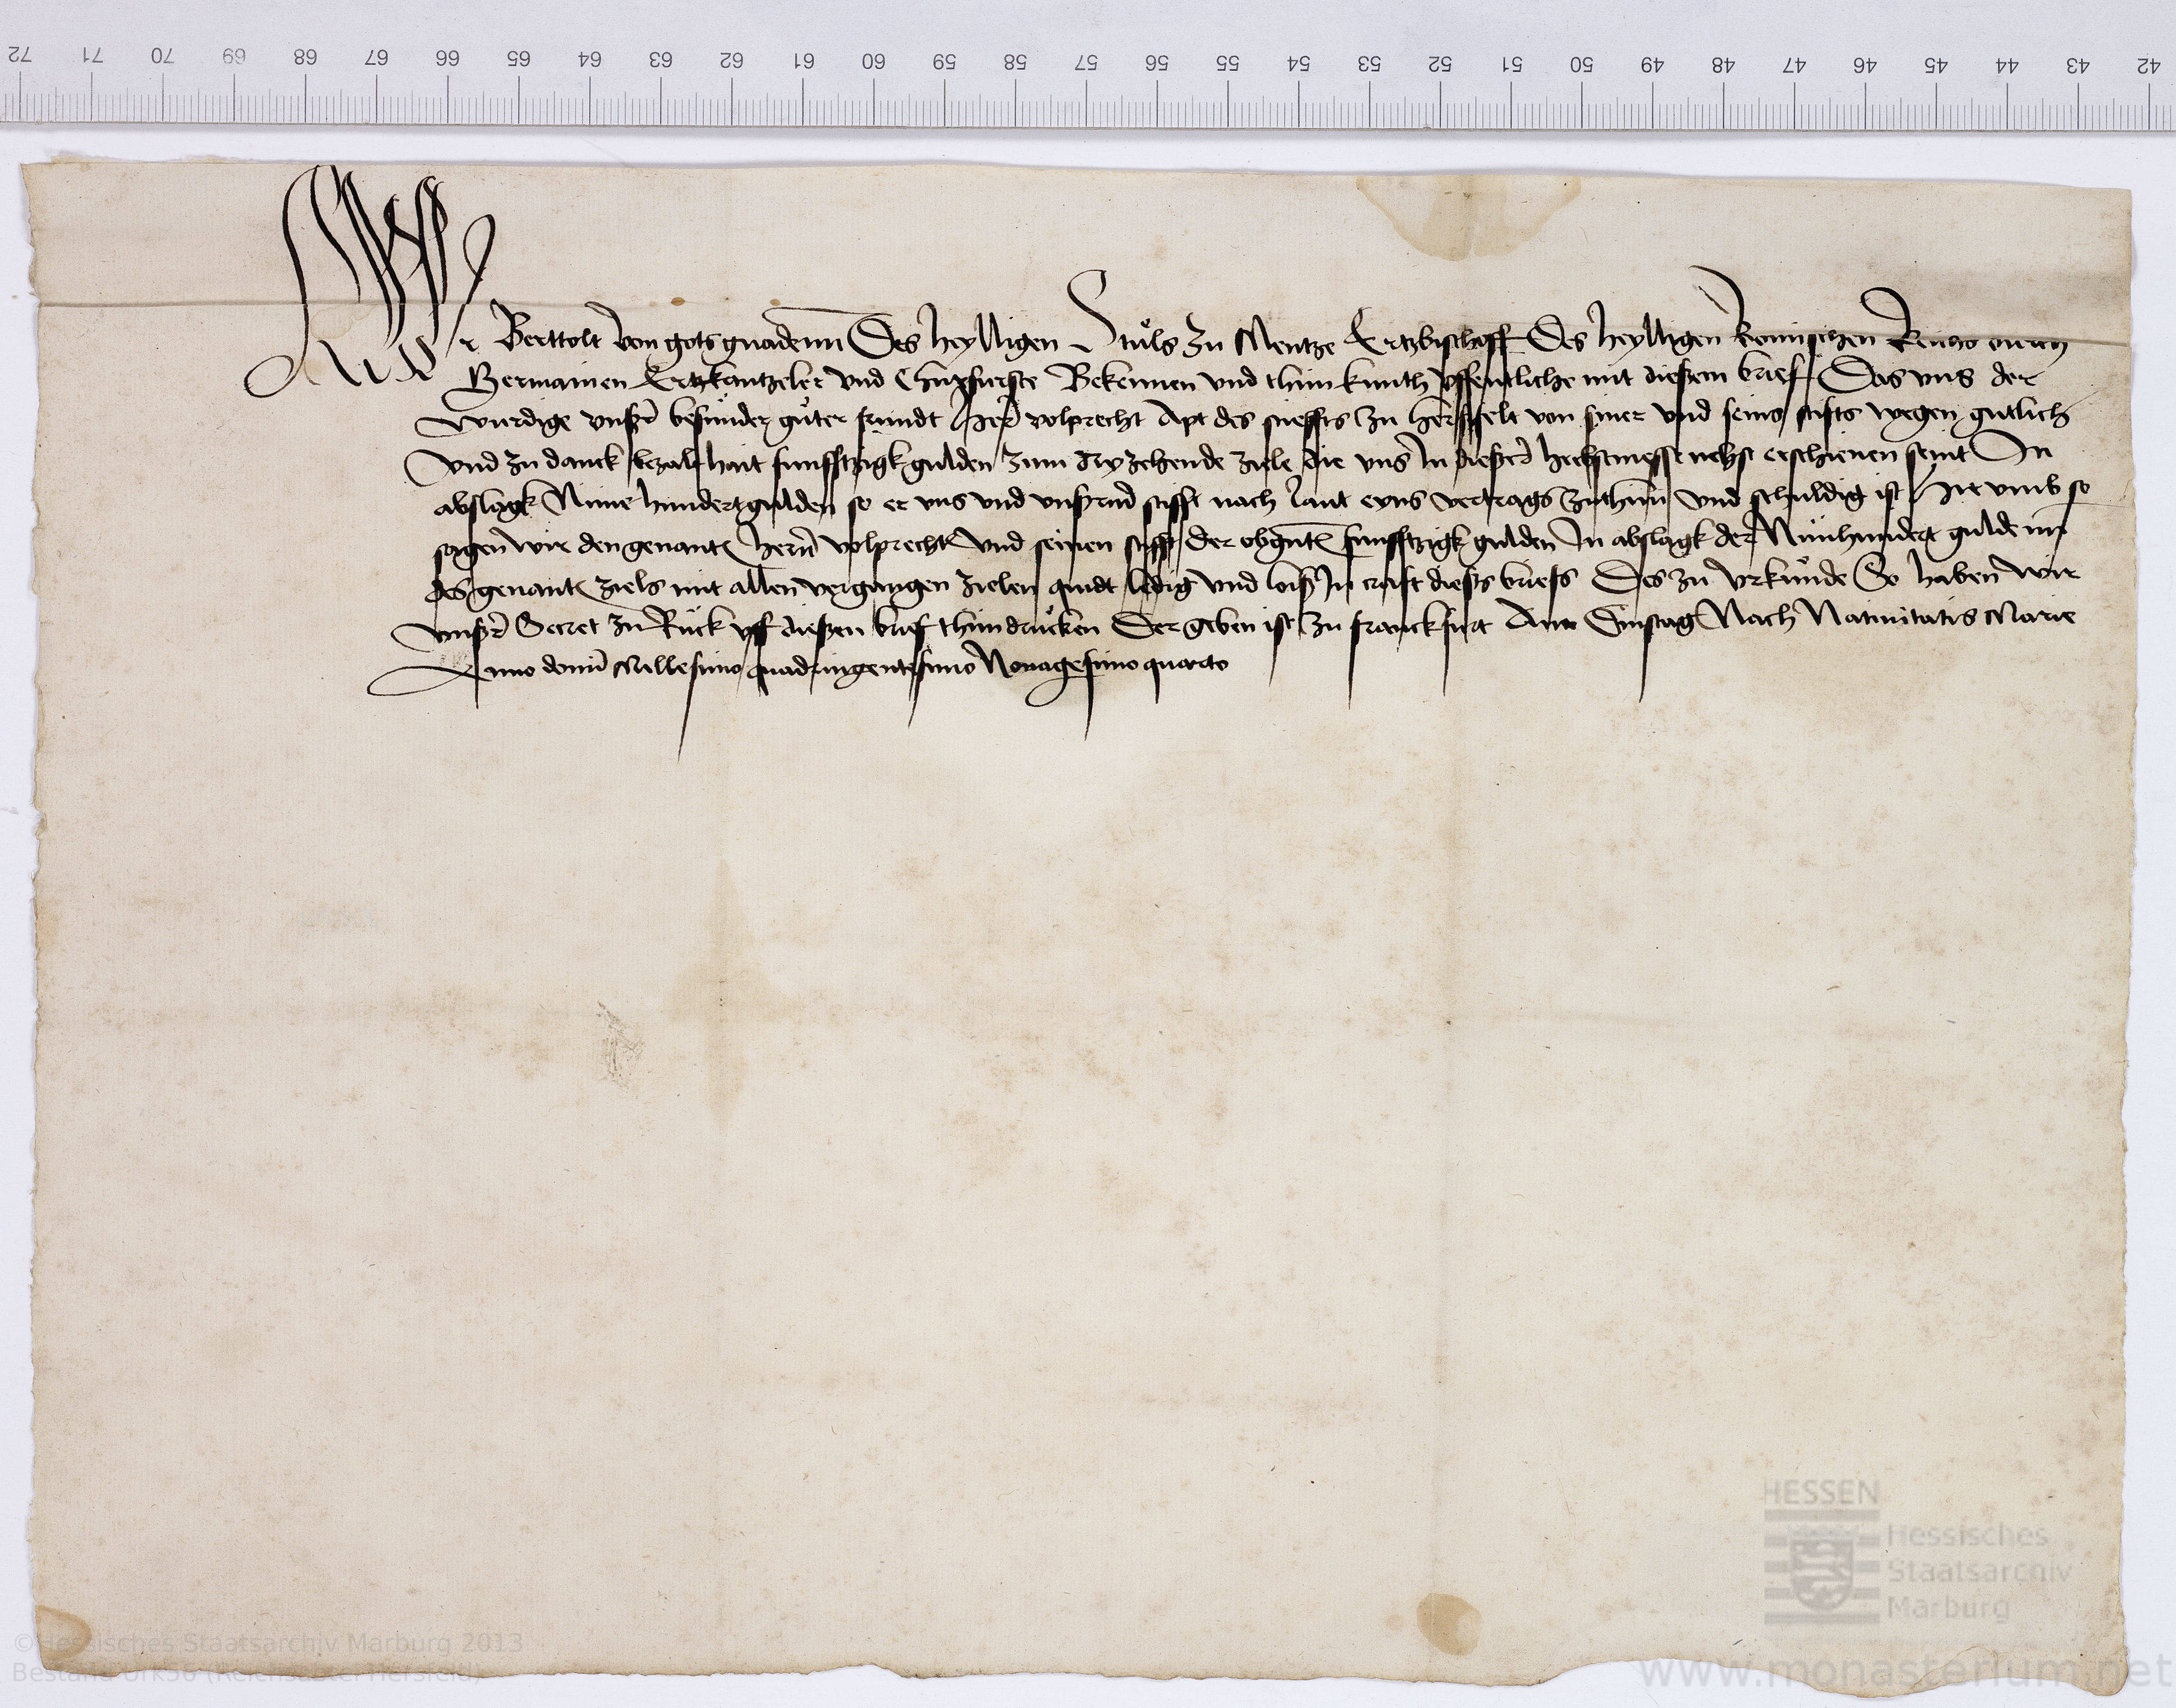 72 71 70 69 68 67 66 65 64 63 62 61 60 59 58 57 56 55 54 53 52 51 50 49 48 47 46 45 44 43 42
Wir Berttolt von gots gnadenn Des heylligen Stuls zu Mentze Ertzbischoff Des heylligen Romischen Reichs durch
Germanien Ertzkantzeler vnd Churfurste Bekennen vnd thun kunth offentliche mit dießem brief Das vns der
wurdige vnßer besunder guter frundt Her volprecht Apt des stieffts zu Herßfelt von siner vnd seins stifts wegen gutlich
vnd zu danck bezalt hait funfftzigk gulden zum dryzehende ziele die vns In dießer herbstmesse nehst erschienen seint In
abslagk Nune hundert gulden so er vns vnd vnßrm stifft nach laut eyns vertrags zuthun vnd schuldig ist Hir vmb so
sagen wir den genanten hern volprechten vnd seinen stifft der obgnten funfftzigk gulden In abslagk der Nunhundert guldenn
des genanten ziels mit allen vergangen zielen quidt ledig vnd loiß In craft dießs briefs Des zu vrkunde So haben wir
vnßer Secret zu Ruck vff dießen brief thun drucken Der geben ist zu franckfurt Am Dinstag Nach Natiuitatis Marie
Anno domini Millesimo quadringentesimo Nonagesimo quarto
HESSEN
Hessisches
Staatsarchiv
Marburg
©Hessisches Staatsarchiv Marburg 2013
Bestand Urk56 (Reichsabtei Hersfeld)
www.monasterium.net